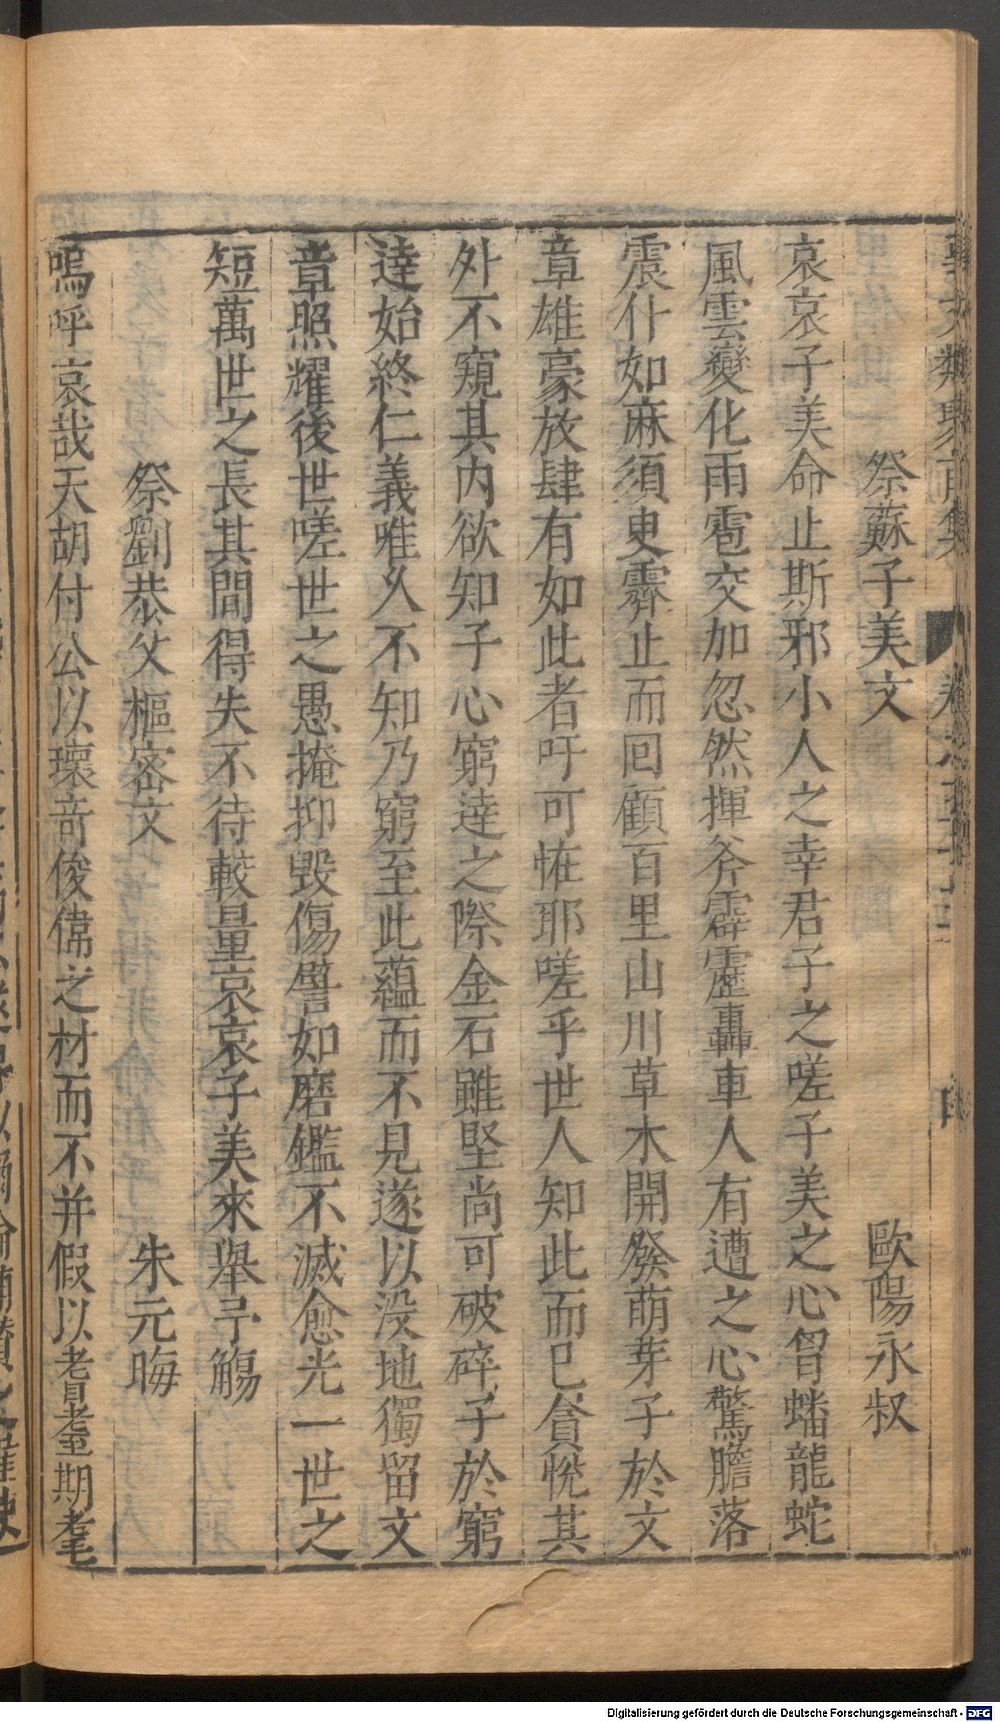 祭蘇子美文 歐陽永叔
哀哀子美命止斯邪小人之幸君子之嗟子美之心曾蟠龍蛇
風雲變化雨雹交加忽然揮斧霹靂轟車人有遭之心驚膽落
震仆如麻須臾霽止而回顧百里山川草木開發萌芽子於文
章雄豪放肆有如此者吁可怪耶嗟乎世人知此而已貪恱其
外不窺其內欲知子心窮達之際金石雖堅尚可破碎子於窮
達始終仁義唯人不知乃窮至此蘊而不見遂以没地獨留文
章照耀後世嗟世之愚掩抑毀傷譬如磨鑑不滅愈光一世之
短萬世之長其間得失不待較量哀哀子美來舉予觴
祭劉恭父樞密文 朱元晦
嗚呼哀哉天胡付公以瓌竒俊偉之材而不并假以耆耋期耄
Digitalisierung gefördert durch die Deutsche Forschungsgemeinschaft - DFG